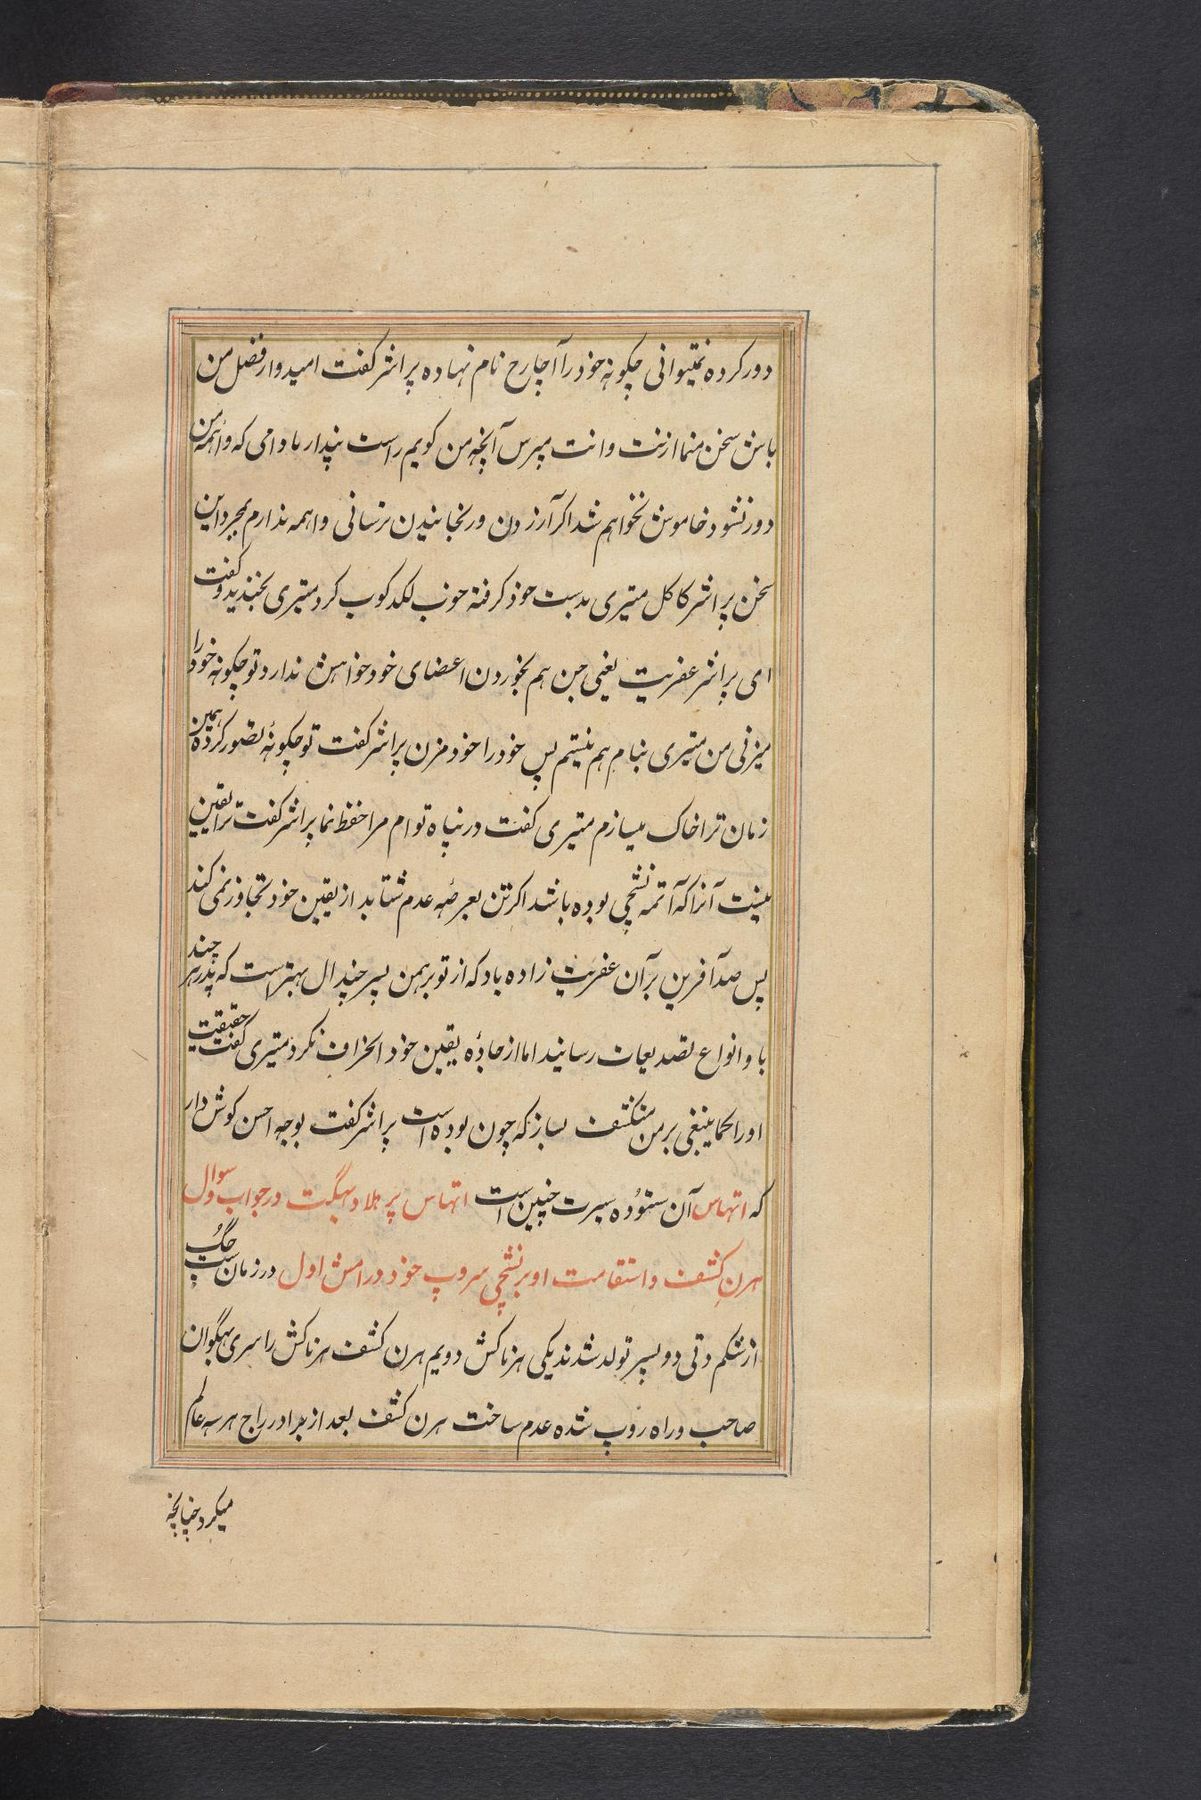 دور کرده نمیتوانی چکونه خود را آچارج نام نهاده پراشر کفت امیدوار فضل من
باش سخن منما ازنت وانت مپرس آنچه من کویم راست پندار مادامی که واهمه من
دور نشود خاموش نخواهم شد اکر آرزدن ورنجانیدن نرسانی واهمه ندارم بمجرد این
سخن پراشر کاکل متیری بدست خود کرفته خوب لکدکوب کرد متیری بخندید و کفت
ای پراشر عفریت یعنی جن هم بخوردن اعضای خود خواهش ندارد تو چکونه خود را
میزنی من متیری بنام هم نیستم پس خود را خود مزن پراشر کفت تو چکونهٔ تصور کرده همین
زمان ترا خاک میسازم متیری کفت در پناه توام مرا حفظ نما پراشر کفت ترا یقین
نیست آنرا که آتمه نشچی بوده باشد اکر تن بعرصهٔ عدم شتابد از یقین خود تجاوز نمی کند
پس صد آفرین بر آن عفریت زاده باد که از تو برهمن پسر چندال بهتر است که پدر هر چند
با و انواع تصدیعات رسانید اما از جادهٔ یقین خود انحراف نکرد متیری کفت حقیقت
او را کماینبغی بر من منکشف بساز که چون بوده است پراشر کفت بوجه احسن کوش دار
که اتهاس آن ستوده سیرت چنین است اتهاس پرهلاد بهگت در جواب و سوال
هرن کشف و استقامت او بر نشچی سروپ خود در امش اول در زمان ست جگ
از شکم دتی دو پسر تولد شدند یکی هرناکش دویم هرن کشف هرناکش را سری بهگوان
صاحب وراه روپ شده عدم ساخت هرن کشف بعد از برادر راج هر سه عالم
میکرد چنانچه